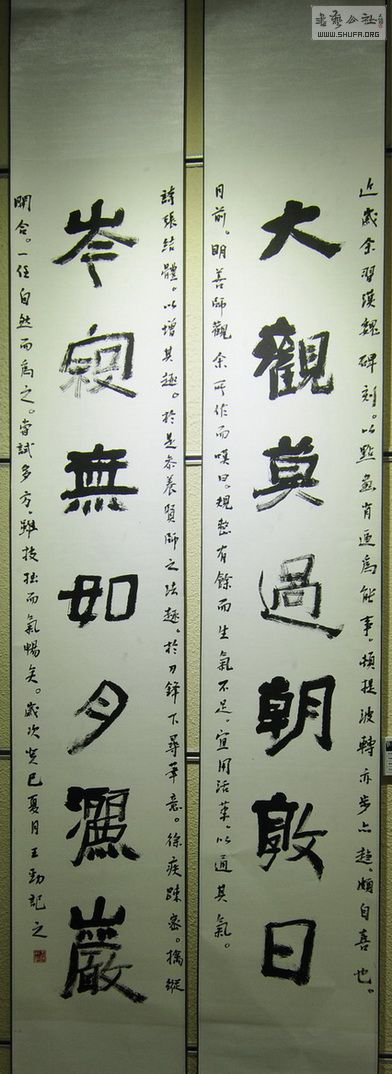 書藝公社
WWW.SHUFA.ORG
近歲余習漢魏碑刻。以點畫肖逼為能事。頓提波轉亦步亦趨。頗自喜也。
大觀莫過朝敭日
日前。明善師觀余所作而嘆曰。規整有餘而生氣不足。宜用活筆。以通其氣。
誇張結體。以增其趣。於是參養賢師之法趣。於刀鋒下尋筆意。徐疾疎密。擒縱
岑寂無如夕灑巖
開合。一任自然而為之。嘗試多方。雖技拙而氣暢矣。歲次癸巳夏月王勁記之